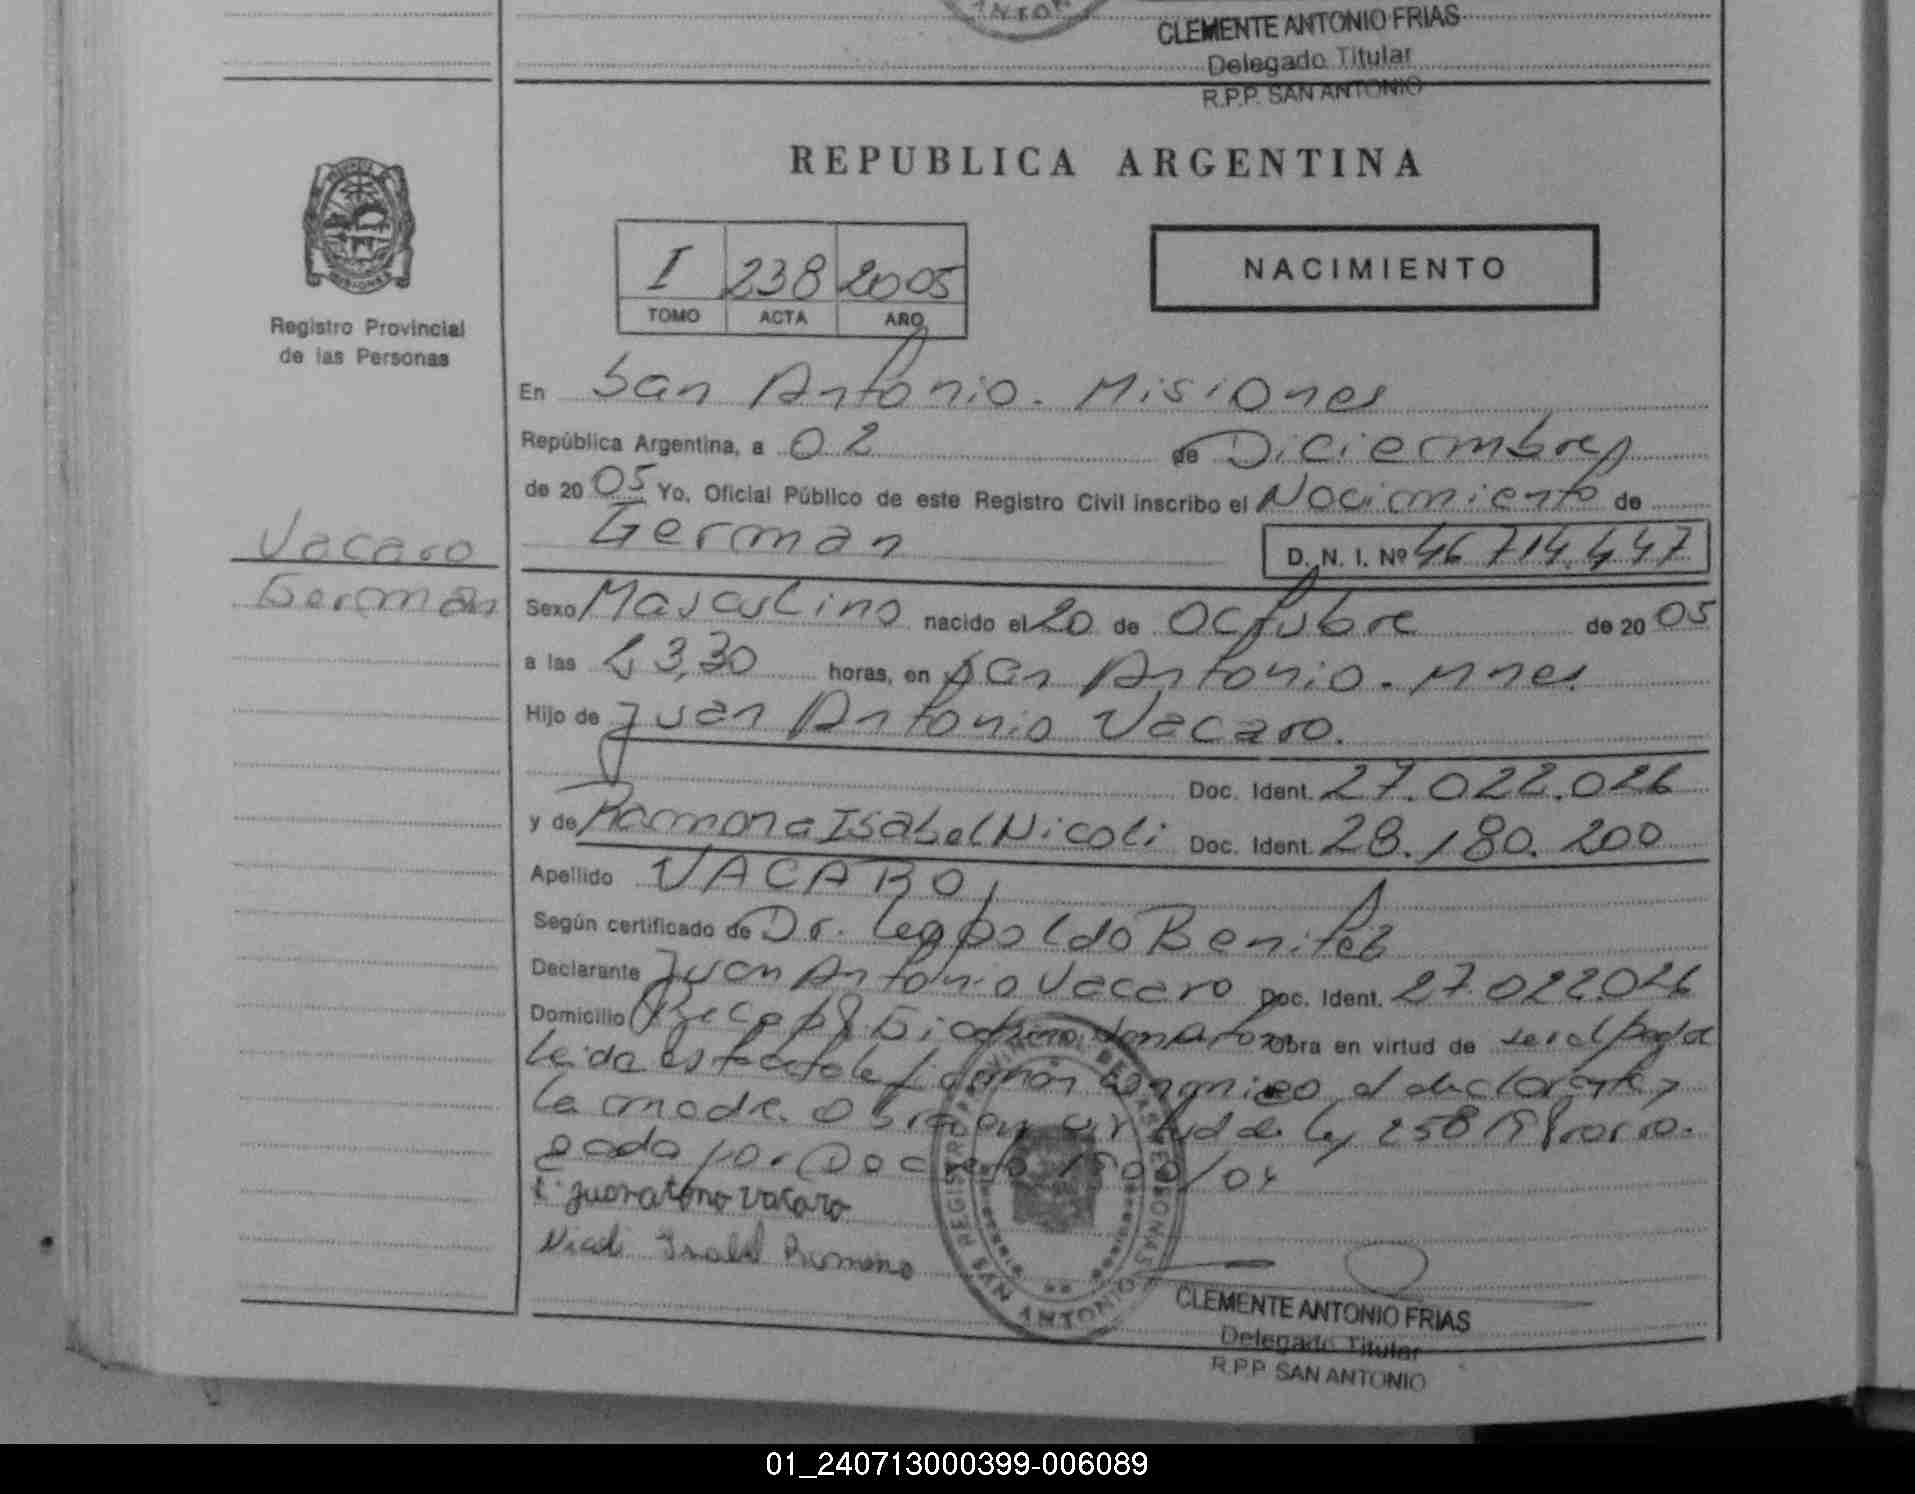 CLEMENTE ANTONIO FRIAS
Delegado Titular
R.P.P. SAN ANTONIO
REPUBLICA ARGENTINA
I 238 2005
TOMO ACTA AÑO
NACIMIENTO
Registro Provincial
de las Personas
En San Antonio - Misiones
República Argentina, a 02 de Diciembre
de 2005 Yo, Oficial Público de este Registro Civil inscribo el Nacimiento de
German D. N. I. Nº 46 714.447
Vacaro
German
Sexo Masculino nacido el 20 de Octubre de 2005
a las 23,30 horas, en San Antonio - Mnes
Hijo de Juan Antonio Vacaro.
Doc. Ident. 27.022.026
y de Ramona Isabel Nicoli Doc. Ident. 28.180.200
Apellido VACARO
Según certificado de Dr. Leopoldo Benitez
Declarante Juan Antonio Vacaro Doc. Ident. 27.022.026
Domicilio Obra en virtud de ser el padre
Leida esta acta la firman conmigo el declarante y
la madre. Obra en virtud de ley 25819 prorro-
gada por Decreto /04
Vacaro
Isabel Ramona
REGISTRO PROVINCIAL DE LAS PERSONAS
SAN ANTONIO
CLEMENTE ANTONIO FRIAS
Delegado Titular
R.P.P. SAN ANTONIO
01_240713000399-006089